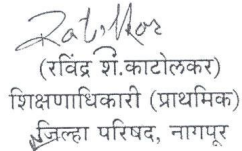 (रविंद्र शे.काटोलकर)
शिक्षणाधिकारी (प्राथमिक)
जिल्हा परिषद, नागपूर